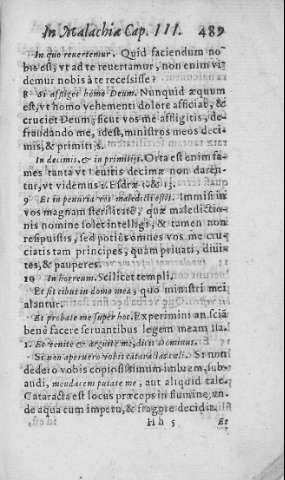 In Malachiæ Cap. III. 489
In quo reuertemur. Quid faciendum no-
bis est, vt ad te reuertamur, non enim vi-
demur nobis à te recessisse?
8 Si affliget homo Deum. Nunquid æquum
est, vt homo vehementi dolore afficiat, &
cruciet Deum, sicut vos me affligitis, de-
fraudando me, id est, ministros meos deci-
mis, & primitijs.
In decimis, & in primitijs. Orta est enim fa-
mes tanta vt Leuitis decimæ non daren-
tur, vt videmus 2. Esdræ & 13.
9 Et in penuria vos maledicti estis. Immisi in
vos magnam sterilitatē, quæ maledictio-
nis nomine solet intelligi, & tamen non
resipuistis, sed potiùs omnes vos me cru-
ciatis tam principes, quàm priuati, diui-
tes, & pauperes.
10 In horreum. Scilicet templi.
Et sit cibus in domo mea, quo ministri mei
alantur.
Et probate me super hoc. Experimini an sciā
benè facere seruantibus legem meam
Et venite & arguite me, dicit Dominus.
Si non aperuero vobis cataractas cæli. Si non
dedero vobis copiosissimum imbrem, sub-
audi, mendacem putate me, aut aliquid tale.
Cataracta est locus præceps in flumine, vn-
de aqua cum impetu, & fragore decidit.
Hh 5 Et